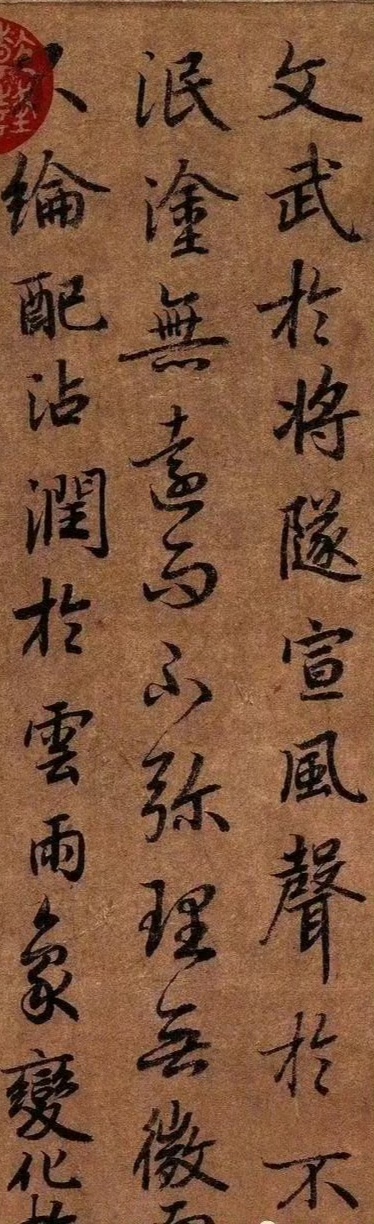 文武於将隊宣風聲於不
泯塗無遠而不弥理無微
不綸配沾潤於雲雨象變化